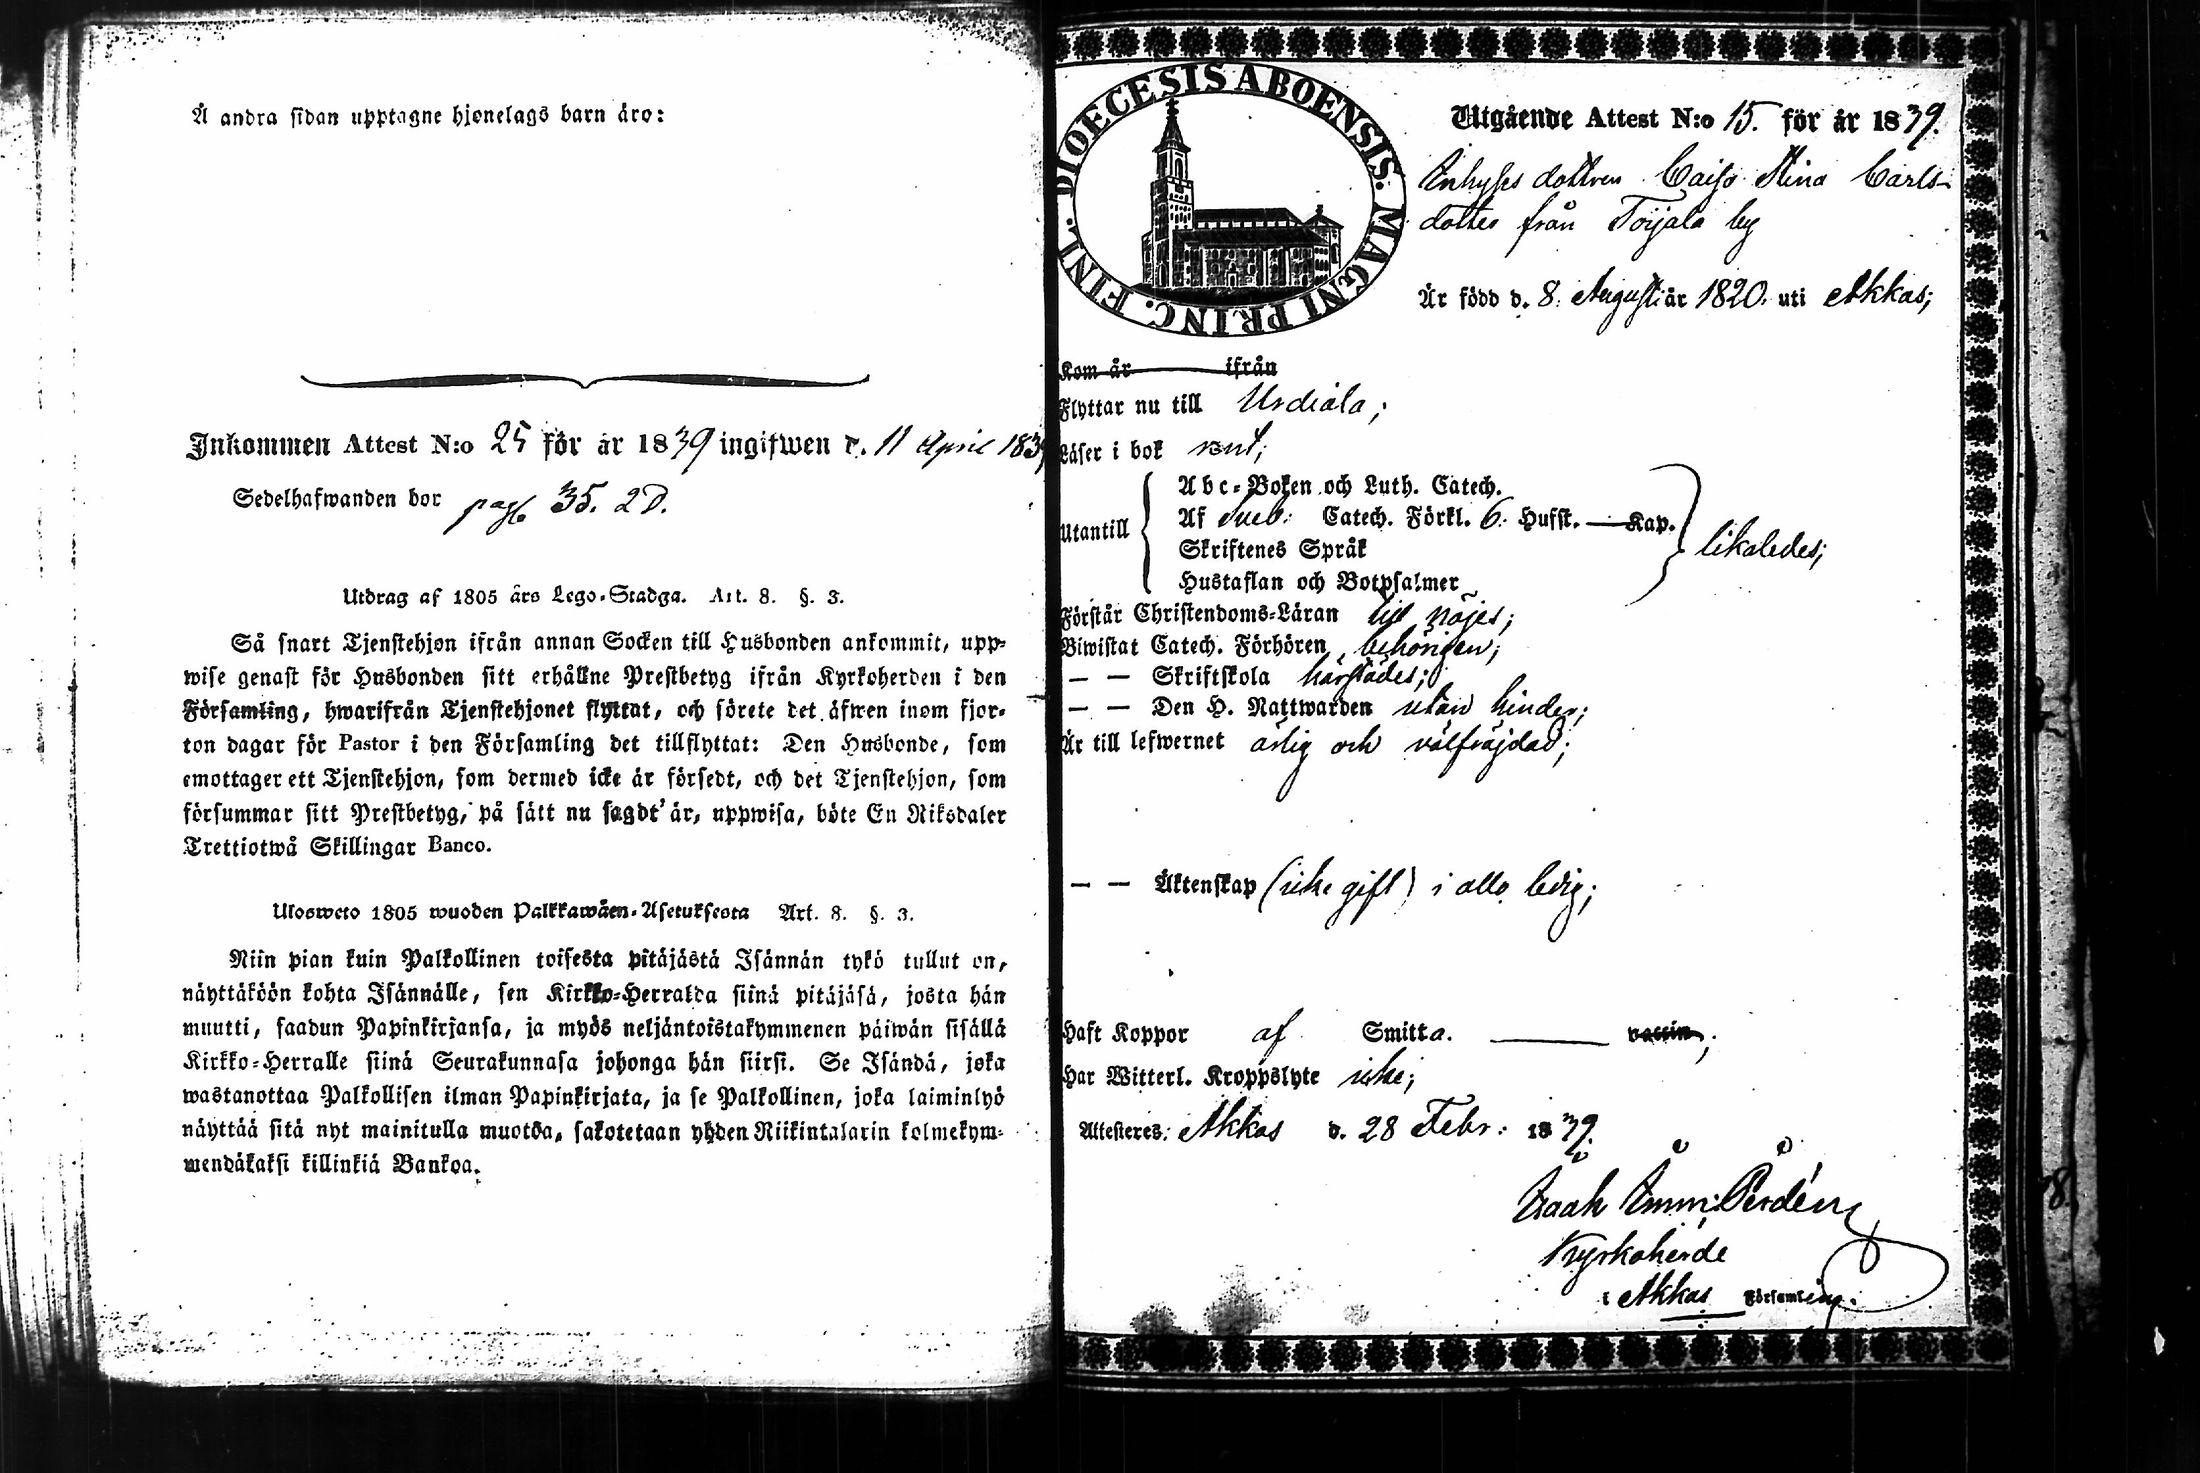 Å andra sidan upptagne hjonelags barn äro:
Inkommen Attest N:o 25 för år 1839 ingifwen d. 11 April 1839
Sedelhafwanden bor pag. 35. 2 D.
Utdrag af 1805 års Lego-Stadga. Art. 8. §. 3.
Så snart Tjenstehjon ifrån annan Socken till Husbonden ankommit, upp-
wise genast för Husbonden sitt erhållne Prestbetyg ifrån Kyrkoherden i den
Församling, hwarifrån Tjenstehjonet flyttat, och förete det äfwen inom fjor-
ton dagar för Pastor i den Församling det tillflyttat: Den Husbonde, som
emottager ett Tjenstehjon, som dermed icke är försedt, och det Tjenstehjon, som
försummar sitt Prestbetyg, på sätt nu sagdt är, uppwisa, böte En Riksdaler
Trettiotwå Skillingar Banco.
Ulosweto 1805 wuoden Palkkawäen-Asetuksesta Art. 8. §. 3.
Niin pian kuin Palkollinen toisesta pitäjästä Isännän tykö tullut on,
näyttäköön kohta Isännälle, sen Kirkko-Herralda siinä pitäjäsä, josta hän
muutti, saadun Papinkirjansa, ja myös neljäntoistakymmenen päiwän sisällä
Kirkko-Herralle siinä Seurakunnasa johonga hän siirsi. Se Isändä, joka
wastanottaa Palkollisen ilman Papinkirjata, ja se Palkollinen, joka laiminlyö
näyttää sitä nyt mainitulla muotoa, sakotetaan yhden Riikintalarin kolmekym-
mendäkaksi killinkiä Bankoa.
DIOECESIS ABOENSIS. MAGNI PRINC. FINL.
Utgående Attest N:o 15. för år 1839.
Inhyses dottren Caisa Stina Carls-
dotter från Toijala by
Är född d. 8. Augusti år 1820. uti Akkas;
Kom år ifrån
Flyttar nu till Urdiala;
Läser i bok rent;
Utantill
Abc-Boken och Luth. Catech.
Af Sveb: Catech. Förkl. 6. Hufst. — Kap.
Skriftenes Språk
Hustaflan och Botpsalmer
likaledes;
Förstår Christendoms-Läran till nöjes;
Biwistat Catech. Förhören behörigen;
— — Skriftskola härstädes;
— — Den H. Nattwarden utan hinder;
Är till lefwernet ärlig och välfräjdad;
— — Äktenskap (icke gift) i allo ledig;
Haft Koppor af Smitta. — vaccin;
Har Witterl. Kroppslyte icke;
Attesteres: Akkas d. 28 Febr: 1839.
Isaak Imm: Perdén
Kyrkoherde
i Akkas Församling.